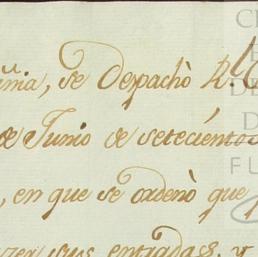 se despachò R.
de Junio de setecientos
, en que se ordenò que
sus entradas, y